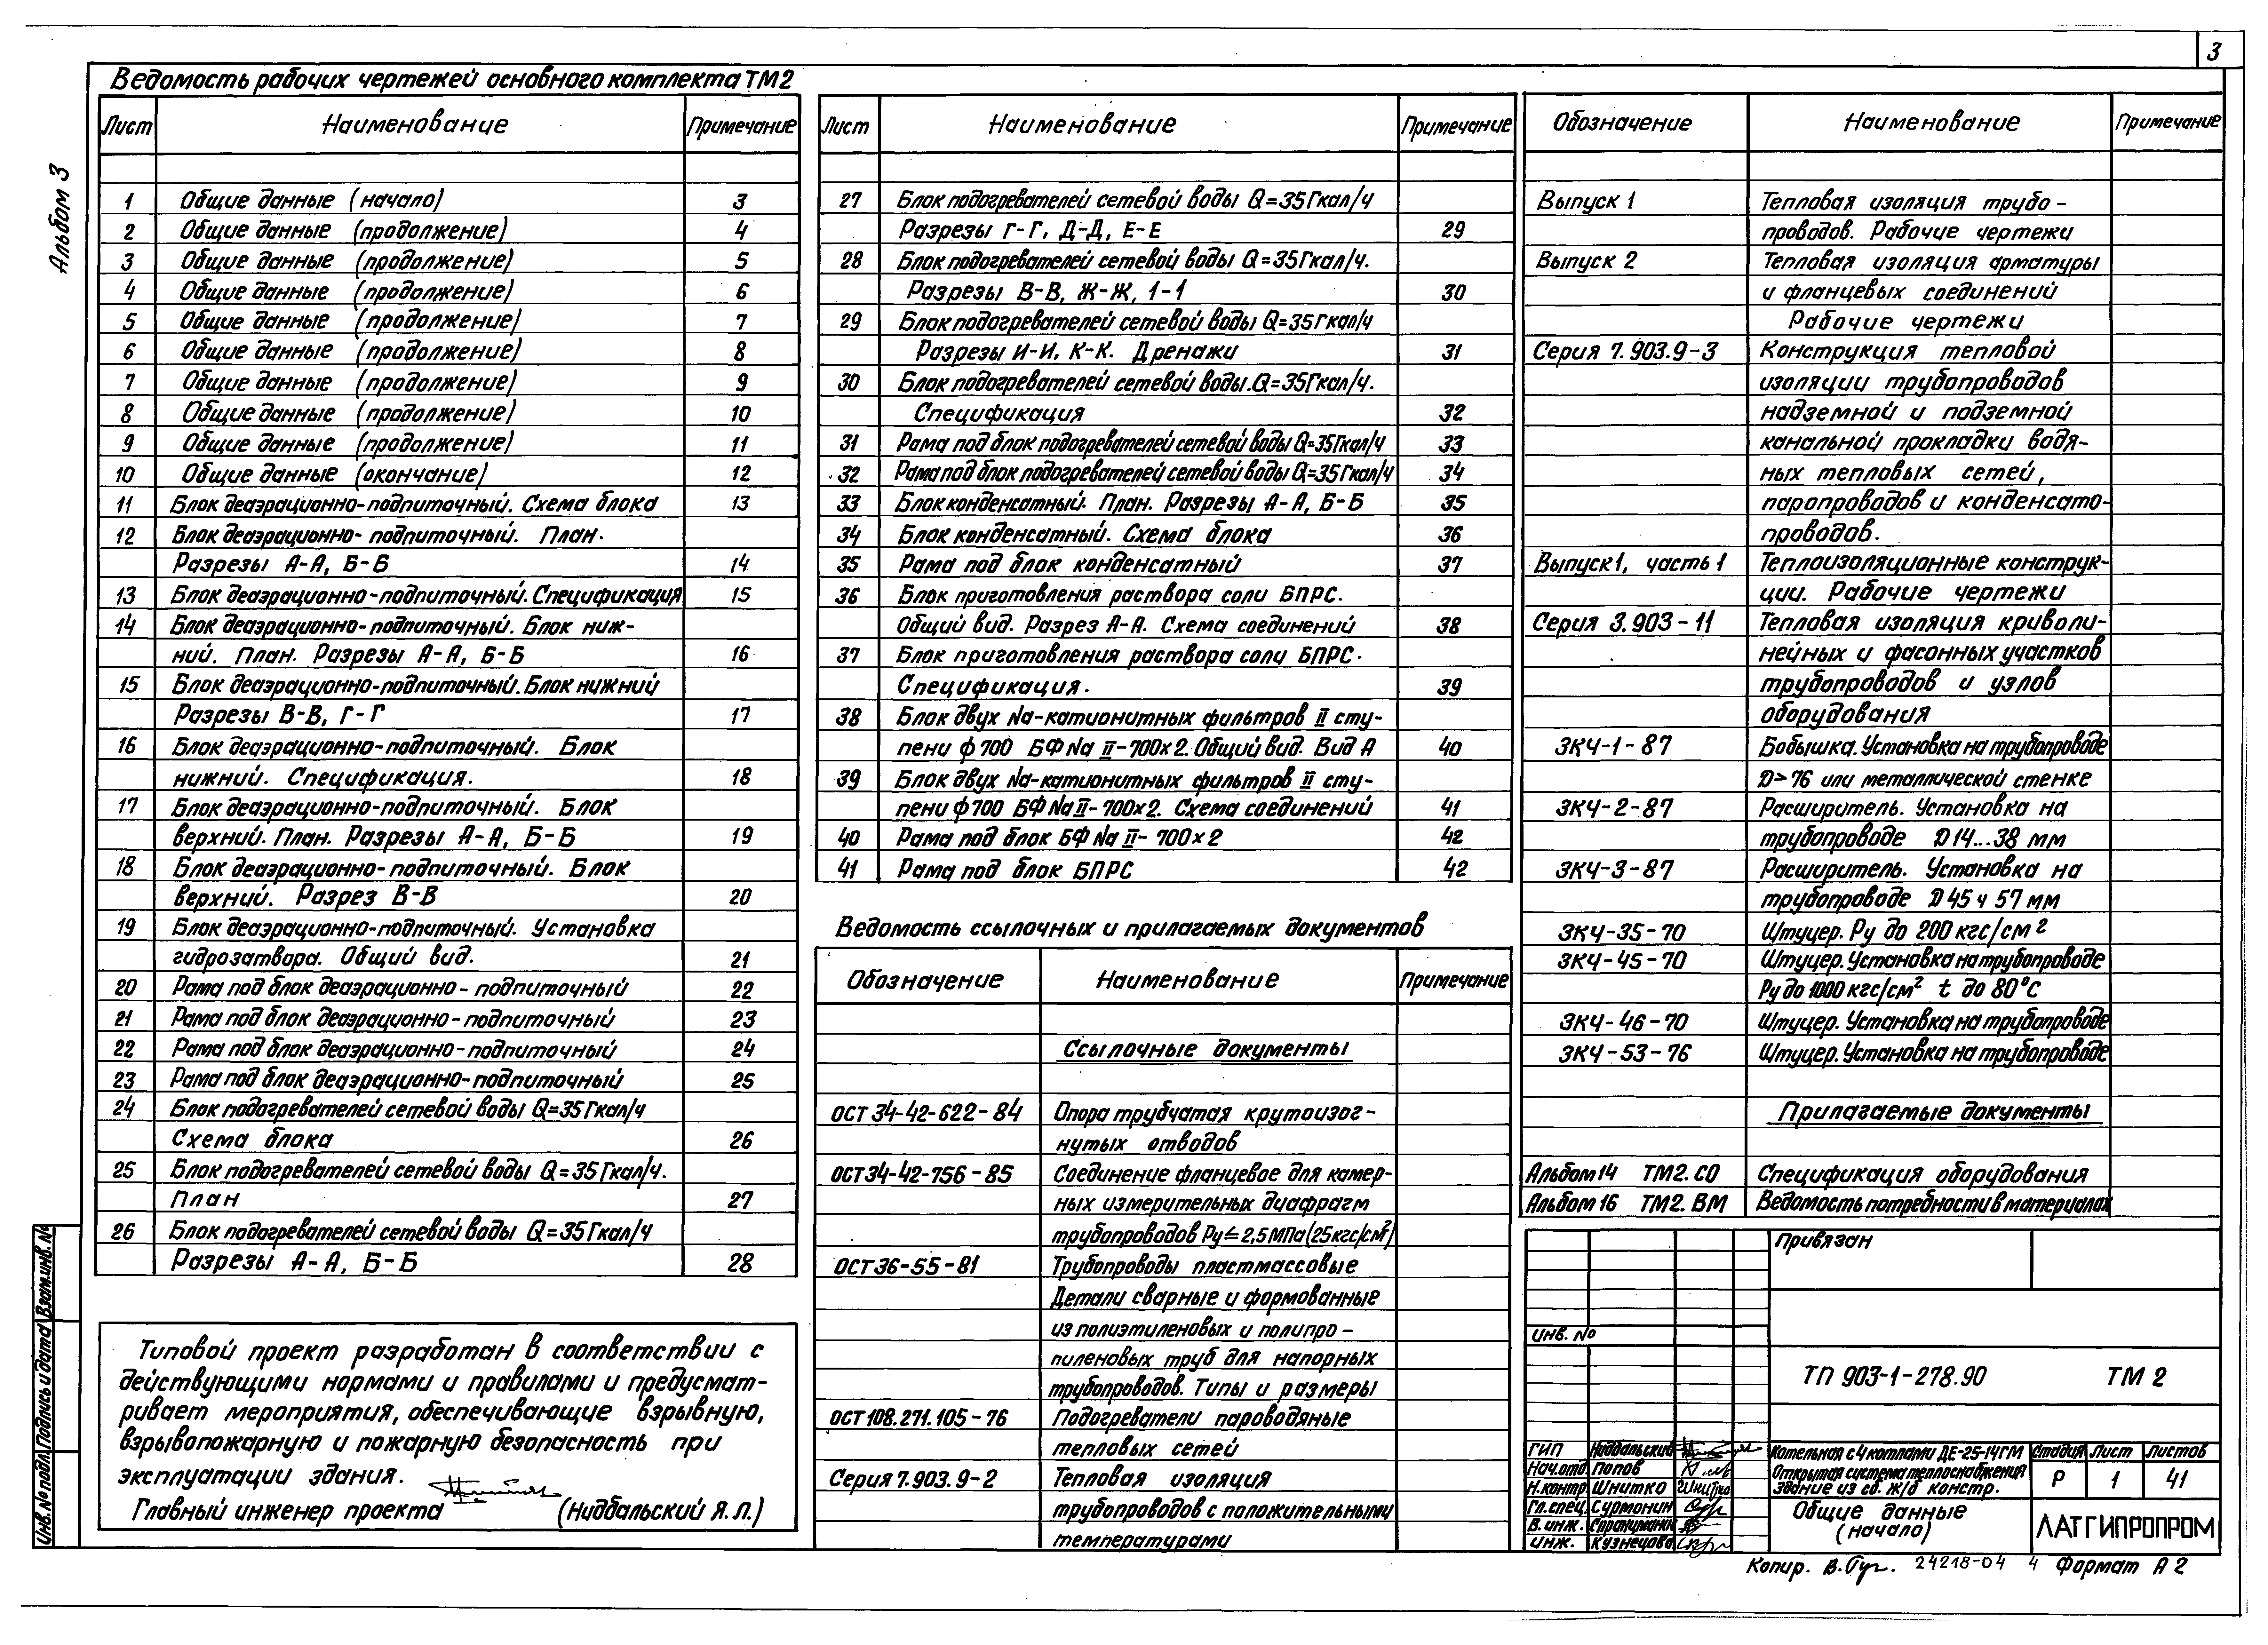 3
Альбом 3
Ведомость рабочих чертежей основного комплекта ТМ2
Лист Наименование Примечание
1 Общие данные (начало) 3
2 Общие данные (продолжение) 4
3 Общие данные (продолжение) 5
4 Общие данные (продолжение) 6
5 Общие данные (продолжение) 7
6 Общие данные (продолжение) 8
7 Общие данные (продолжение) 9
8 Общие данные (продолжение) 10
9 Общие данные (продолжение) 11
10 Общие данные (окончание) 12
11 Блок деаэрационно-подпиточный. Схема блока 13
12 Блок деаэрационно-подпиточный. План.
Разрезы А-А, Б-Б 14
13 Блок деаэрационно-подпиточный. Спецификация 15
14 Блок деаэрационно-подпиточный. Блок ниж-
ний. План. Разрезы А-А, Б-Б 16
15 Блок деаэрационно-подпиточный. Блок нижний
Разрезы В-В, Г-Г 17
16 Блок деаэрационно-подпиточный. Блок
нижний. Спецификация. 18
17 Блок деаэрационно-подпиточный. Блок
верхний. План. Разрезы А-А, Б-Б 19
18 Блок деаэрационно-подпиточный. Блок
верхний. Разрез В-В 20
19 Блок деаэрационно-подпиточный. Установка
гидрозатвора. Общий вид. 21
20 Рама под блок деаэрационно-подпиточный 22
21 Рама под блок деаэрационно-подпиточный 23
22 Рама под блок деаэрационно-подпиточный 24
23 Рама под блок деаэрационно-подпиточный 25
24 Блок подогревателей сетевой воды Q=35Гкал/ч
Схема блока 26
25 Блок подогревателей сетевой воды Q=35Гкал/ч.
План 27
26 Блок подогревателей сетевой воды Q=35Гкал/ч
Разрезы А-А, Б-Б 28
Типовой проект разработан в соответствии с
действующими нормами и правилами и предусмат-
ривает мероприятия, обеспечивающие взрывную,
взрывопожарную и пожарную безопасность при
эксплуатации здания.
Главный инженер проекта (Нидбальский Я.Л.)
Лист Наименование Примечание
27 Блок подогревателей сетевой воды Q=35Гкал/ч
Разрезы Г-Г, Д-Д, Е-Е 29
28 Блок подогревателей сетевой воды Q=35Гкал/ч.
Разрезы В-В, Ж-Ж, 1-1 30
29 Блок подогревателей сетевой воды Q=35Гкал/ч
Разрезы И-И, К-К. Дренажи 31
30 Блок подогревателей сетевой воды. Q=35Гкал/ч.
Спецификация 32
31 Рама под блок подогревателей сетевой воды Q=35Гкал/ч 33
32 Рама под блок подогревателей сетевой воды Q=35Гкал/ч 34
33 Блок конденсатный. План. Разрезы А-А, Б-Б 35
34 Блок конденсатный. Схема блока 36
35 Рама под блок конденсатный 37
36 Блок приготовления раствора соли БПРС.
Общий вид. Разрез А-А. Схема соединений 38
37 Блок приготовления раствора соли БПРС.
Спецификация. 39
38 Блок двух Na-катионитных фильтров II сту-
пени ф700 БФNa II-700х2. Общий вид. Вид А 40
39 Блок двух Na-катионитных фильтров II сту-
пени ф700 БФNa II-700х2. Схема соединений 41
40 Рама под блок БФNa II-700х2 42
41 Рама под блок БПРС 42
Ведомость ссылочных и прилагаемых документов
Обозначение Наименование Примечание
Ссылочные документы
ОСТ 34-42-622-84 Опора трубчатая крутоизог-
нутых отводов
ОСТ 34-42-756-85 Соединение фланцевое для камер-
ных измерительных диафрагм
трубопроводов Ру≤2,5МПа(25кгс/см²)
ОСТ 36-55-81 Трубопроводы пластмассовые
Детали сварные и формованные
из полиэтиленовых и полипро-
пиленовых труб для напорных
трубопроводов. Типы и размеры
ОСТ 108.271.105-76 Подогреватели пароводяные
тепловых сетей
Серия 7.903.9-2 Тепловая изоляция
трубопроводов с положительными
температурами
Обозначение Наименование Примечание
Выпуск 1 Тепловая изоляция трубо-
проводов. Рабочие чертежи
Выпуск 2 Тепловая изоляция арматуры
и фланцевых соединений
Рабочие чертежи
Серия 7.903.9-3 Конструкция тепловой
изоляции трубопроводов
надземной и подземной
канальной прокладки водя-
ных тепловых сетей,
паропроводов и конденсато-
проводов.
Выпуск 1, часть 1 Теплоизоляционные конструк-
ции. Рабочие чертежи
Серия 3.903-11 Тепловая изоляция криволи-
нейных и фасонных участков
трубопроводов и узлов
оборудования
ЗКЧ-1-87 Бобышка. Установка на трубопроводе
D>76 или металлической стенке
ЗКЧ-2-87 Расширитель. Установка на
трубопроводе D14...38 мм
ЗКЧ-3-87 Расширитель. Установка на
трубопроводе D45 ч 57мм
ЗКЧ-35-70 Штуцер. Ру до 200 кгс/см²
ЗКЧ-45-70 Штуцер. Установка на трубопроводе
Ру до 1000 кгс/см² t до 80°С
ЗКЧ-46-70 Штуцер. Установка на трубопроводе
ЗКЧ-53-76 Штуцер. Установка на трубопроводе
Прилагаемые документы
Альбом 14 ТМ2.СО Спецификация оборудования
Альбом 16 ТМ2.ВМ Ведомость потребности в материалах
Привязан
Инв. №
ТП 903-1-278.90 ТМ 2
ГИП Нидбальский
Нач.отд. Попов
Н.контр. Шнитко
Гл.спец. Сурмонин
В.инж.
Инж. Кузнецова
Котельная с 4 котлами ДЕ-25-14ГМ
Открытая система теплоснабжения
Здание из сб. ж/б констр.
Стадия Лист Листов
Р 1 41
Общие данные
(начало)
ЛАТГИПРОПРОМ
Копир. 24218-04 4 Формат А2
Инв.№ подл. Подпись и дата Взам.инв.№